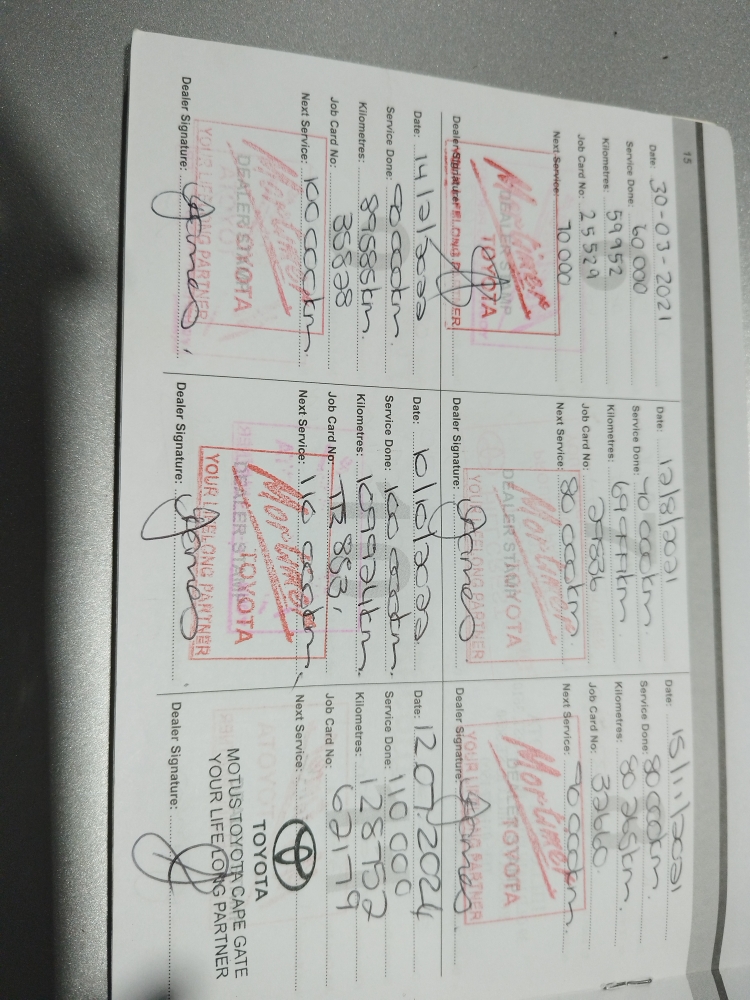 15
Date: 30-03-2021
Service Done: 60 000
Kilometres: 59952
Job Card No: 25529
Next Service: 70 000
Mortimer
TOYOTA
Dealer Signature:
Date: 12/8/2021
Service Done: 70 000km.
Kilometres: 69 977km
Job Card No: 29836
Next Service: 80 000km.
Mortimer
DEALER STAMP
TOYOTA
YOUR LIFELONG PARTNER
Dealer Signature:
Date: 15/11/2021
Service Done: 80 000km.
Kilometres: 80 265km.
Job Card No: 32660.
Next Service: 90 000km
Mortimer
TOYOTA
YOUR LIFELONG PARTNER
Dealer Signature:
Date: 14/2/2022
Service Done: 90 000km.
Kilometres: 89585km.
Job Card No: 35828
Next Service: 100 000km
Mortimer
DEALER STAMP
TOYOTA
YOUR LIFELONG PARTNER
Dealer Signature:
Date: 10/10/2022
Service Done: 100 000km.
Kilometres: 109924km.
Job Card No:
Next Service: 110 000km
Mortimer
DEALER STAMP
TOYOTA
YOUR LIFELONG PARTNER
Dealer Signature:
Date: 12.07.2024
Service Done: 110 000
Kilometres: 128752
Job Card No: 62179
Next Service:
TOYOTA
MOTUS TOYOTA CAPE GATE
YOUR LIFE LONG PARTNER
Dealer Signature: